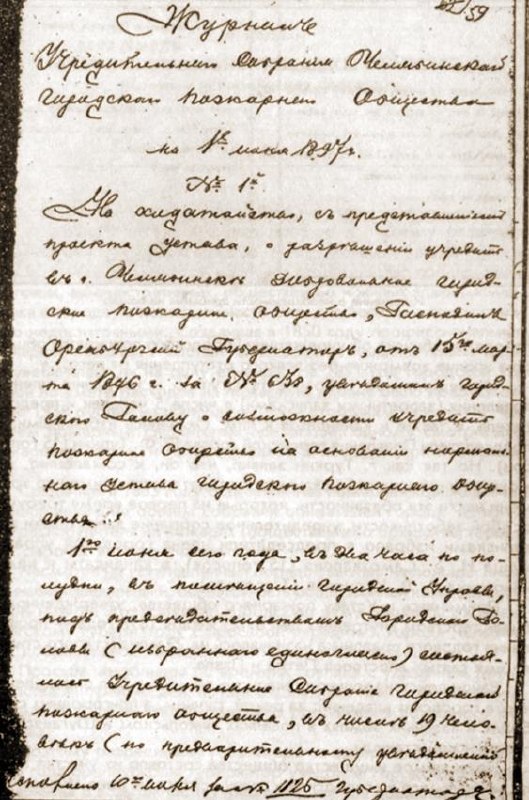 59
Журналъ
Учредительнаго Собранія Челябинскаго
городского пожарнаго Общества
на 1е іюня 1897 г.
№ 1й
На ходатайство, съ представленіемъ
проекта Устава, о разрѣшеніи учредить
въ г. Челябинскѣ городо-
ское пожарное общество, Господинъ
Оренбургскій Губернаторъ, отъ 15го мар-
та 1896 г. за №, увѣдомилъ город-
ского Голову о возможности учредить
пожарное общество на основаніи нормаль-
наго устава городского пожарнаго обще-
ства.
1го іюня сего года, въ два часа по по-
лудни, въ помѣщеніи городской Управы,
подъ предсѣдательствомъ Городского Го-
ловы (избраннаго единогласно) состоя-
лось Учредительное Собраніе городского
пожарнаго общества, въ числѣ 19 чело-
вѣкъ (по предварительному увѣдомленію
10го іюня за № 1125 Губернатору